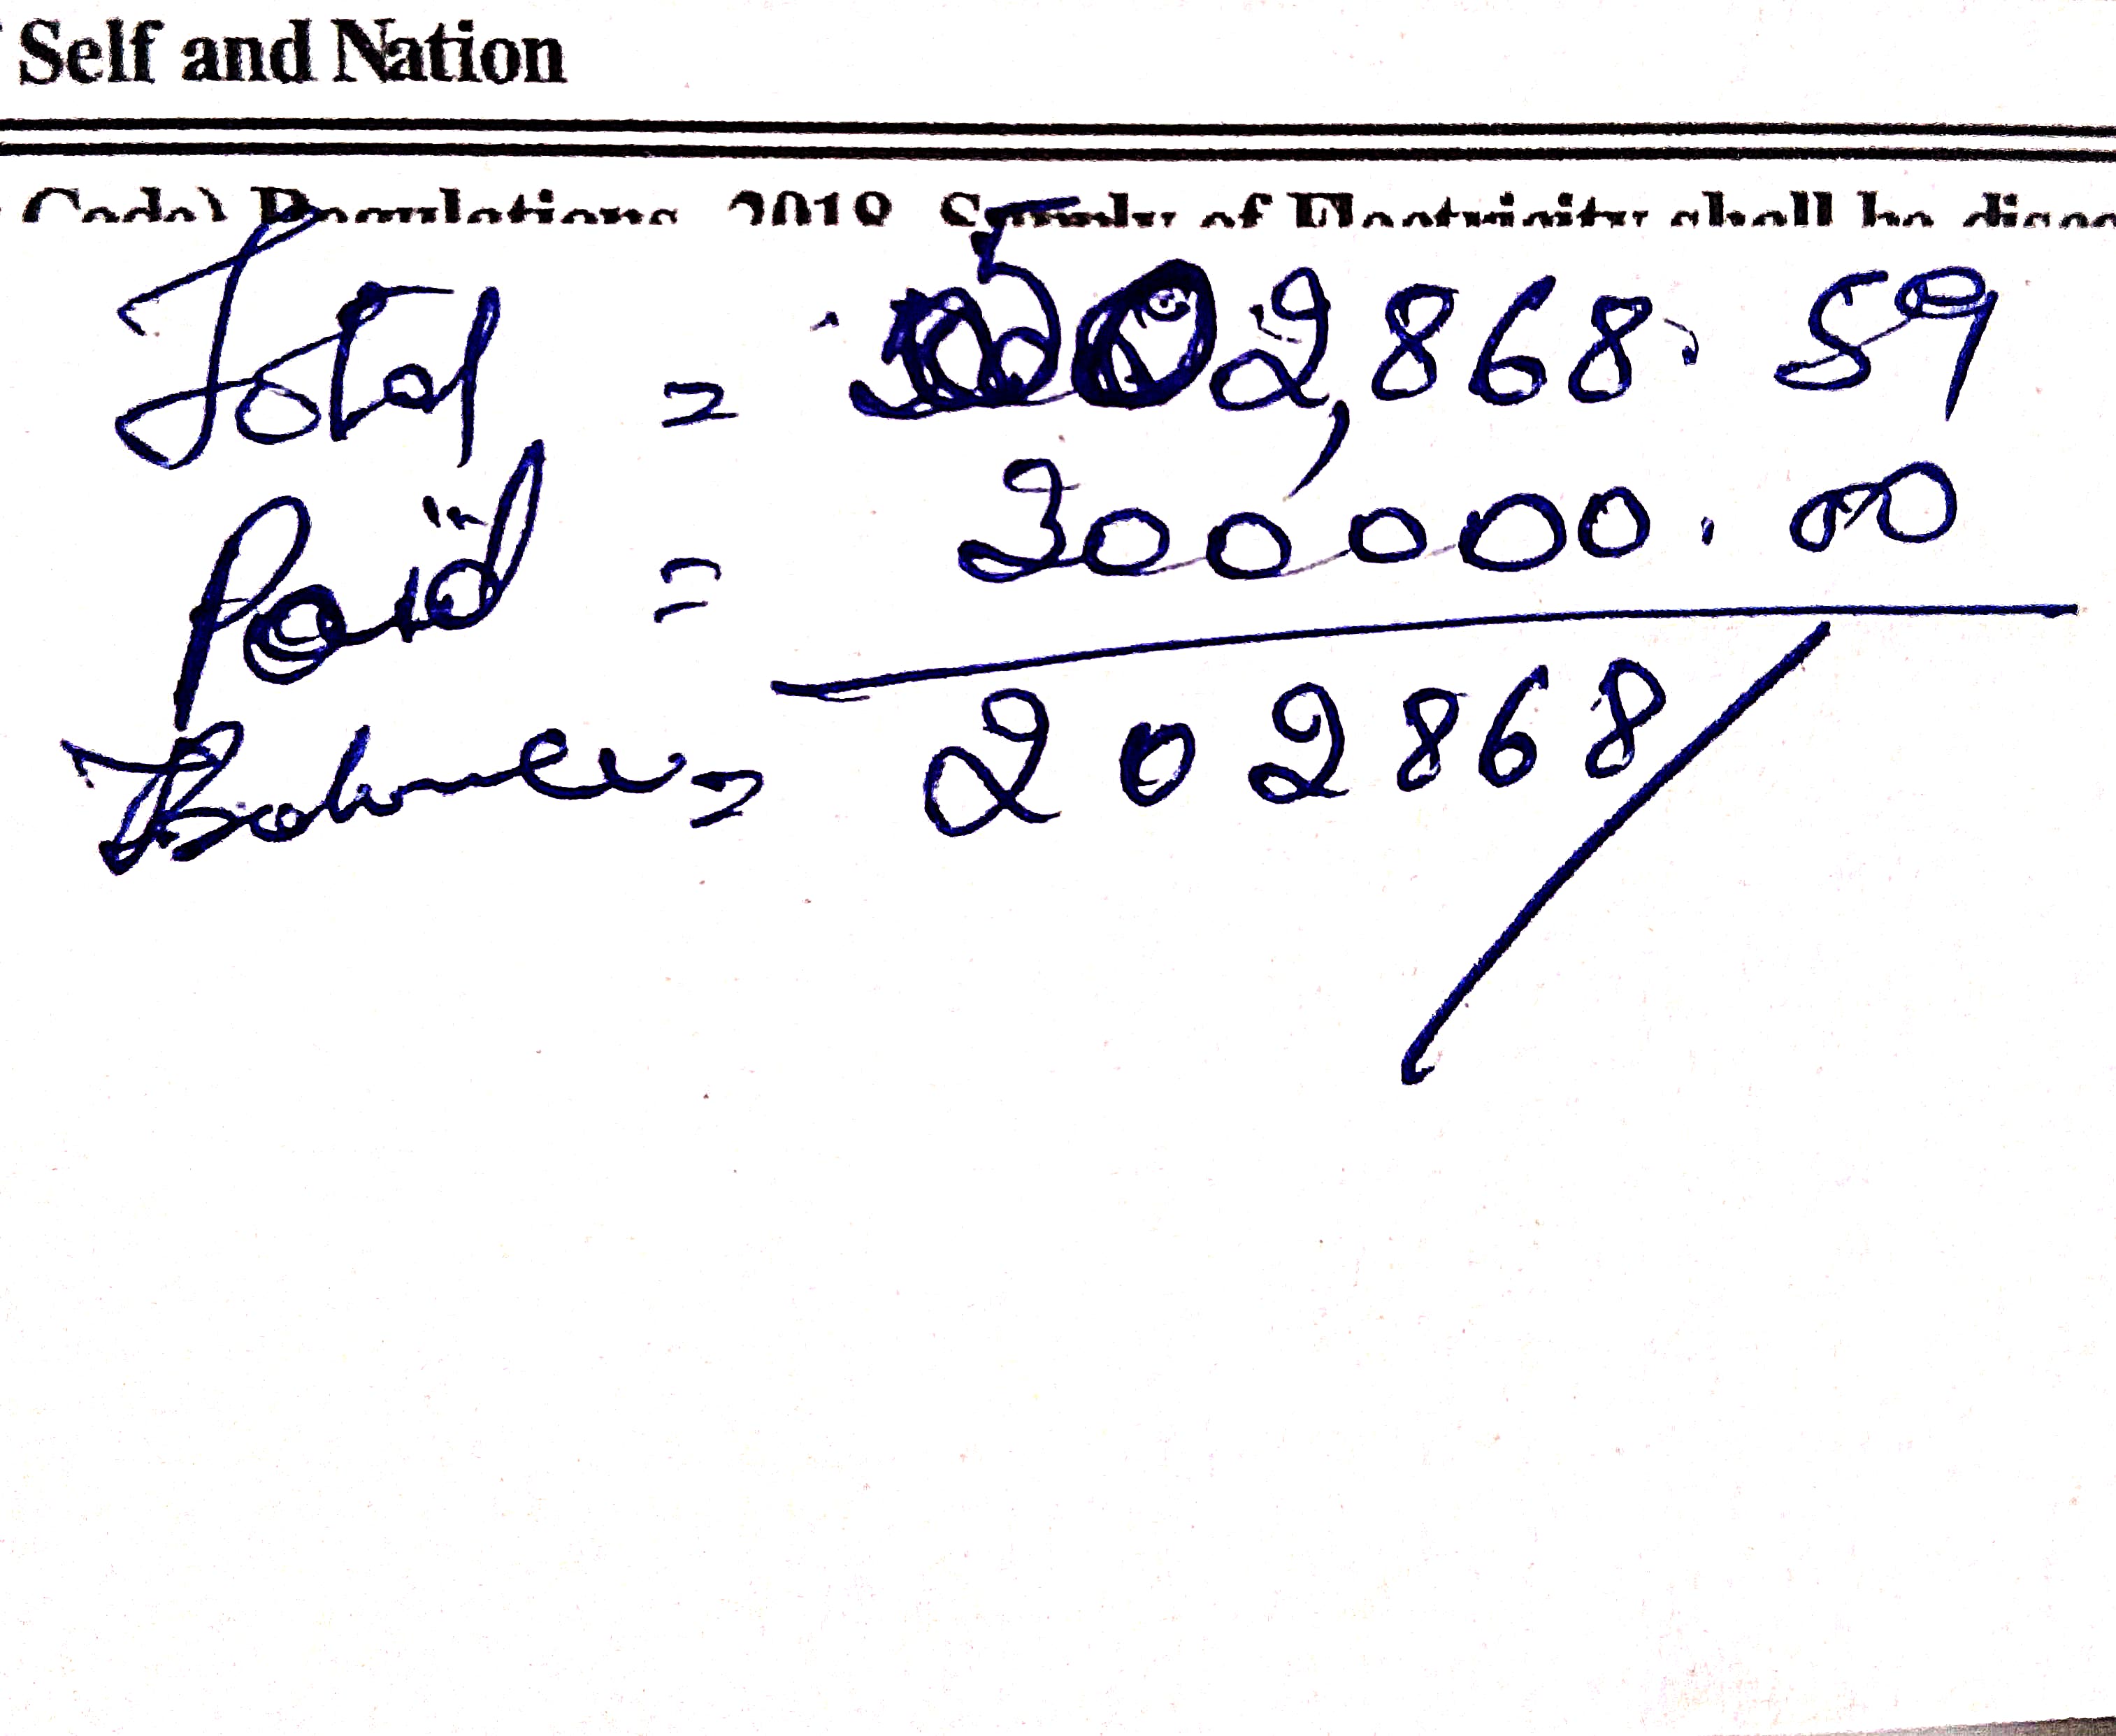 Self and Nation
Code) Regulations, 2019 Supply of Electricity shall be
Total = 502,868.59
Paid = 300000.00
Balance = 202868/